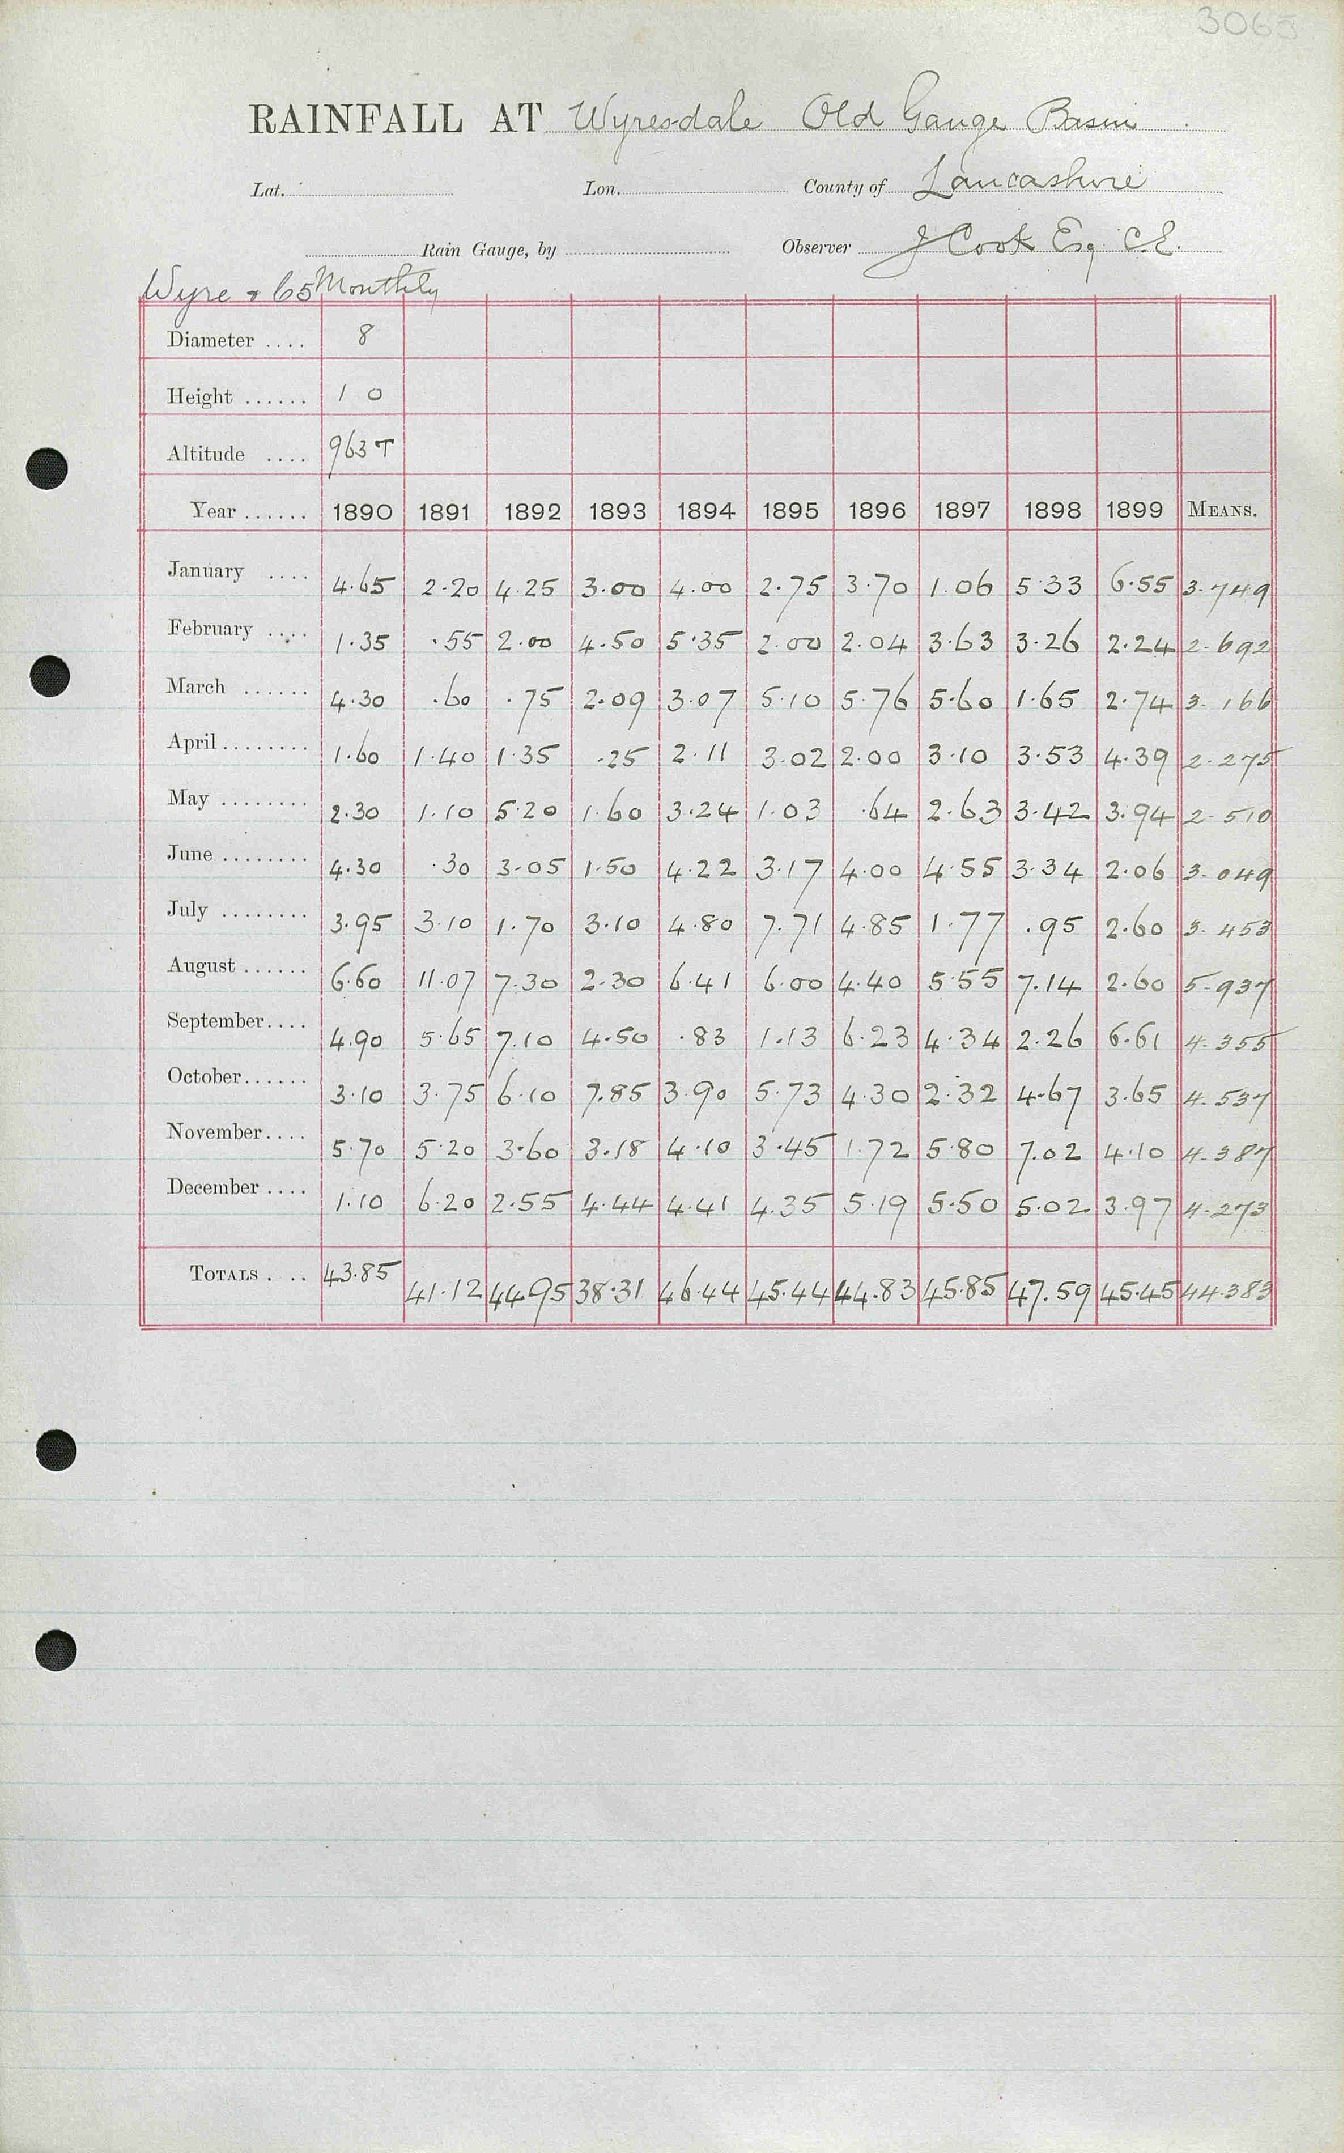 3065
RAINFALL AT Wyresdale Old Gauge Basin
Lat. Lon. County of Lancashire
Rain Gauge, by Observer J Cook Esq C.E.
Wyre & 65 Monthly
Diameter .... 8
Height ...... 1 0
Altitude .... 963 T
Year ...... 1890 1891 1892 1893 1894 1895 1896 1897 1898 1899 MEANS.
January .... 4.65 2.20 4.25 3.00 4.00 2.75 3.70 1.06 5.33 6.55 3.749
February .... 1.35 .55 2.00 4.50 5.35 2.00 2.04 3.63 3.26 2.24 2.692
March ...... 4.30 .60 .75 2.09 3.07 5.10 5.76 5.60 1.65 2.74 3.166
April ........ 1.60 1.40 1.35 .25 2.11 3.02 2.00 3.10 3.53 4.39 2.275
May ........ 2.30 1.10 5.20 1.60 3.24 1.03 .64 2.63 3.42 3.94 2.510
June ........ 4.30 .30 3.05 1.50 4.22 3.17 4.00 4.55 3.34 2.06 3.049
July ........ 3.95 3.10 1.70 3.10 4.80 7.71 4.85 1.77 .95 2.60 3.453
August ...... 6.60 11.07 7.30 2.30 6.41 6.00 4.40 5.55 7.14 2.60 5.937
September .... 4.90 5.65 7.10 4.50 .83 1.13 6.23 4.34 2.26 6.61 4.355
October ...... 3.10 3.75 6.10 7.85 3.90 5.73 4.30 2.32 4.67 3.65 4.537
November .... 5.70 5.20 3.60 3.18 4.10 3.45 1.72 5.80 7.02 4.10 4.387
December .... 1.10 6.20 2.55 4.44 4.41 4.35 5.19 5.50 5.02 3.97 4.273
TOTALS .... 43.85 41.12 44.95 38.31 46.44 45.44 44.83 45.85 47.59 45.45 44.383